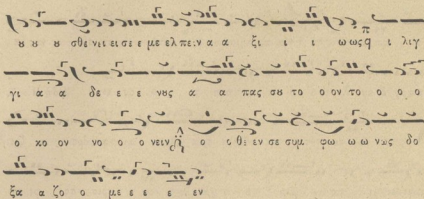 ȣ ȣ ȣ σθε νει ει σε ε με ελ πει να α α ξι ι ι ω ως ι λιγ
γι α α δε ε ε νȣς α α πας σȣ το ο ον το ο ο ο
ο κο ον νο ο ο νειν ο ο θι εν σε συμ φω ω ω νως δο
ξα α ζο ο ο με ε ε ε εν